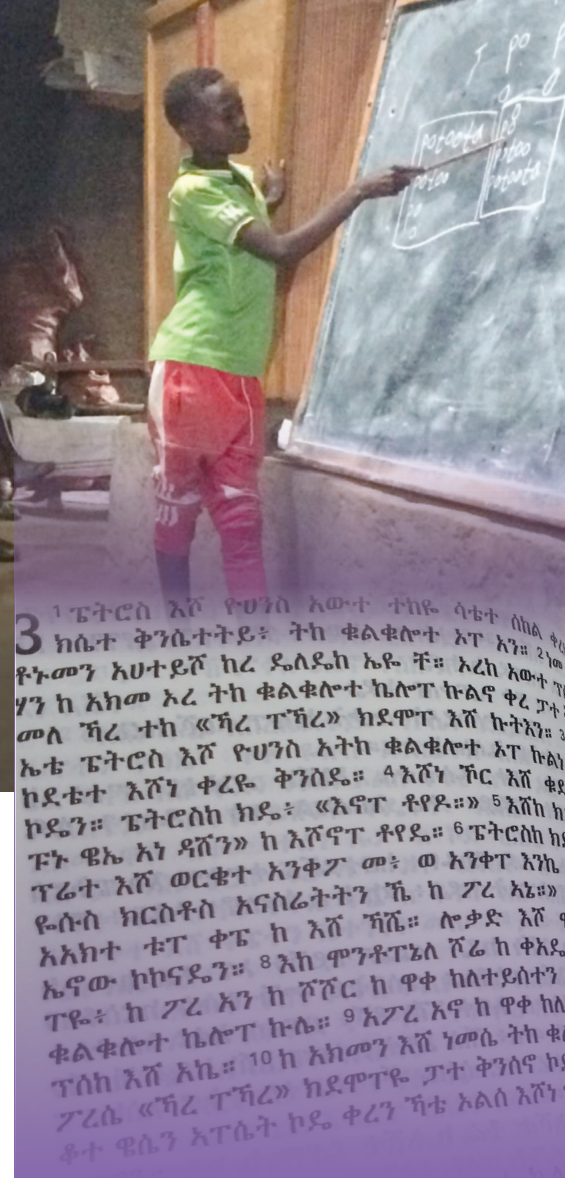 po
potoota
potoo
po
potoo
potoota
3 1 ፔትሮስ እሾ ዮሀንስ አውተ ተከዬ ሳቴተ ስከል
ክሴተ ቅንሴተትይ፥ ትከ ቁልቁሎተ ኦፐ አን። 2
ቶኑመን አሀተይሾ ከረ ዴለዴከ ኤዬ ቸ። ኦረከ አውተ
ሃን ከ አክመ ኦረ ትከ ቁልቁሎተ ኬሎፐ ኩልኖ ቀረ ፓተ
መለ ኻረ ተከ «ኻረ ፐኻረ» ክደሞፐ እሸ ኩትእን። 3
ኤቴ ፔትሮስ እሾ ዮሀንስ አትከ ቁልቁሎተ ኦፐ
ኮደቴተ እሾነ ቀረዬ ቅንሰዴ። 4 እሾነ ኾር እሸ
ኮዴን። ፔትሮስከ ክዴ፥ «እኖፐ ቶየዶ።» 5 እሸከ
ፑኑ ዌኤ አነ ዳሸን» ከ እሾኖፐ ቶየዴ። 6 ፔትሮስከ
ፕሬተ እሾ ወርቄተ አንቀፖ መ፥ ወ አንቀፐ እንኬ
ዬሱስ ክርስቶስ አናስሬትትን ኼ ከ ፖረ አኔ።»
አአክተ ቱፐ ቀፔ ከ እሸ ኻሼ። ሎቃድ እሾ
ኤኖው ኮኮናዴን። 8 እከ ሞንቶፐኔለ ሾሬ ከ
ፐዬ፥ ከ ፖረ አን ከ ሾሾር ከ ዋቀ ከለተይሰተን
ቁልቁሎተ ኬሎፐ ኩሌ። 9 አፖረ አኖ ከ ዋቀ
ፕሰከ እሸ አኬ። 10 ከ አክመን እሸ ነመሴ ትከ
ፖረሴ «ኻረ ፐኻረ» ክደሞፐዬ ፓተ ቅንሰኖ
ቆተ ዌሴን አፐሴት ኮዴ ቀረን ኻቴ ኦልሰ እሾነ